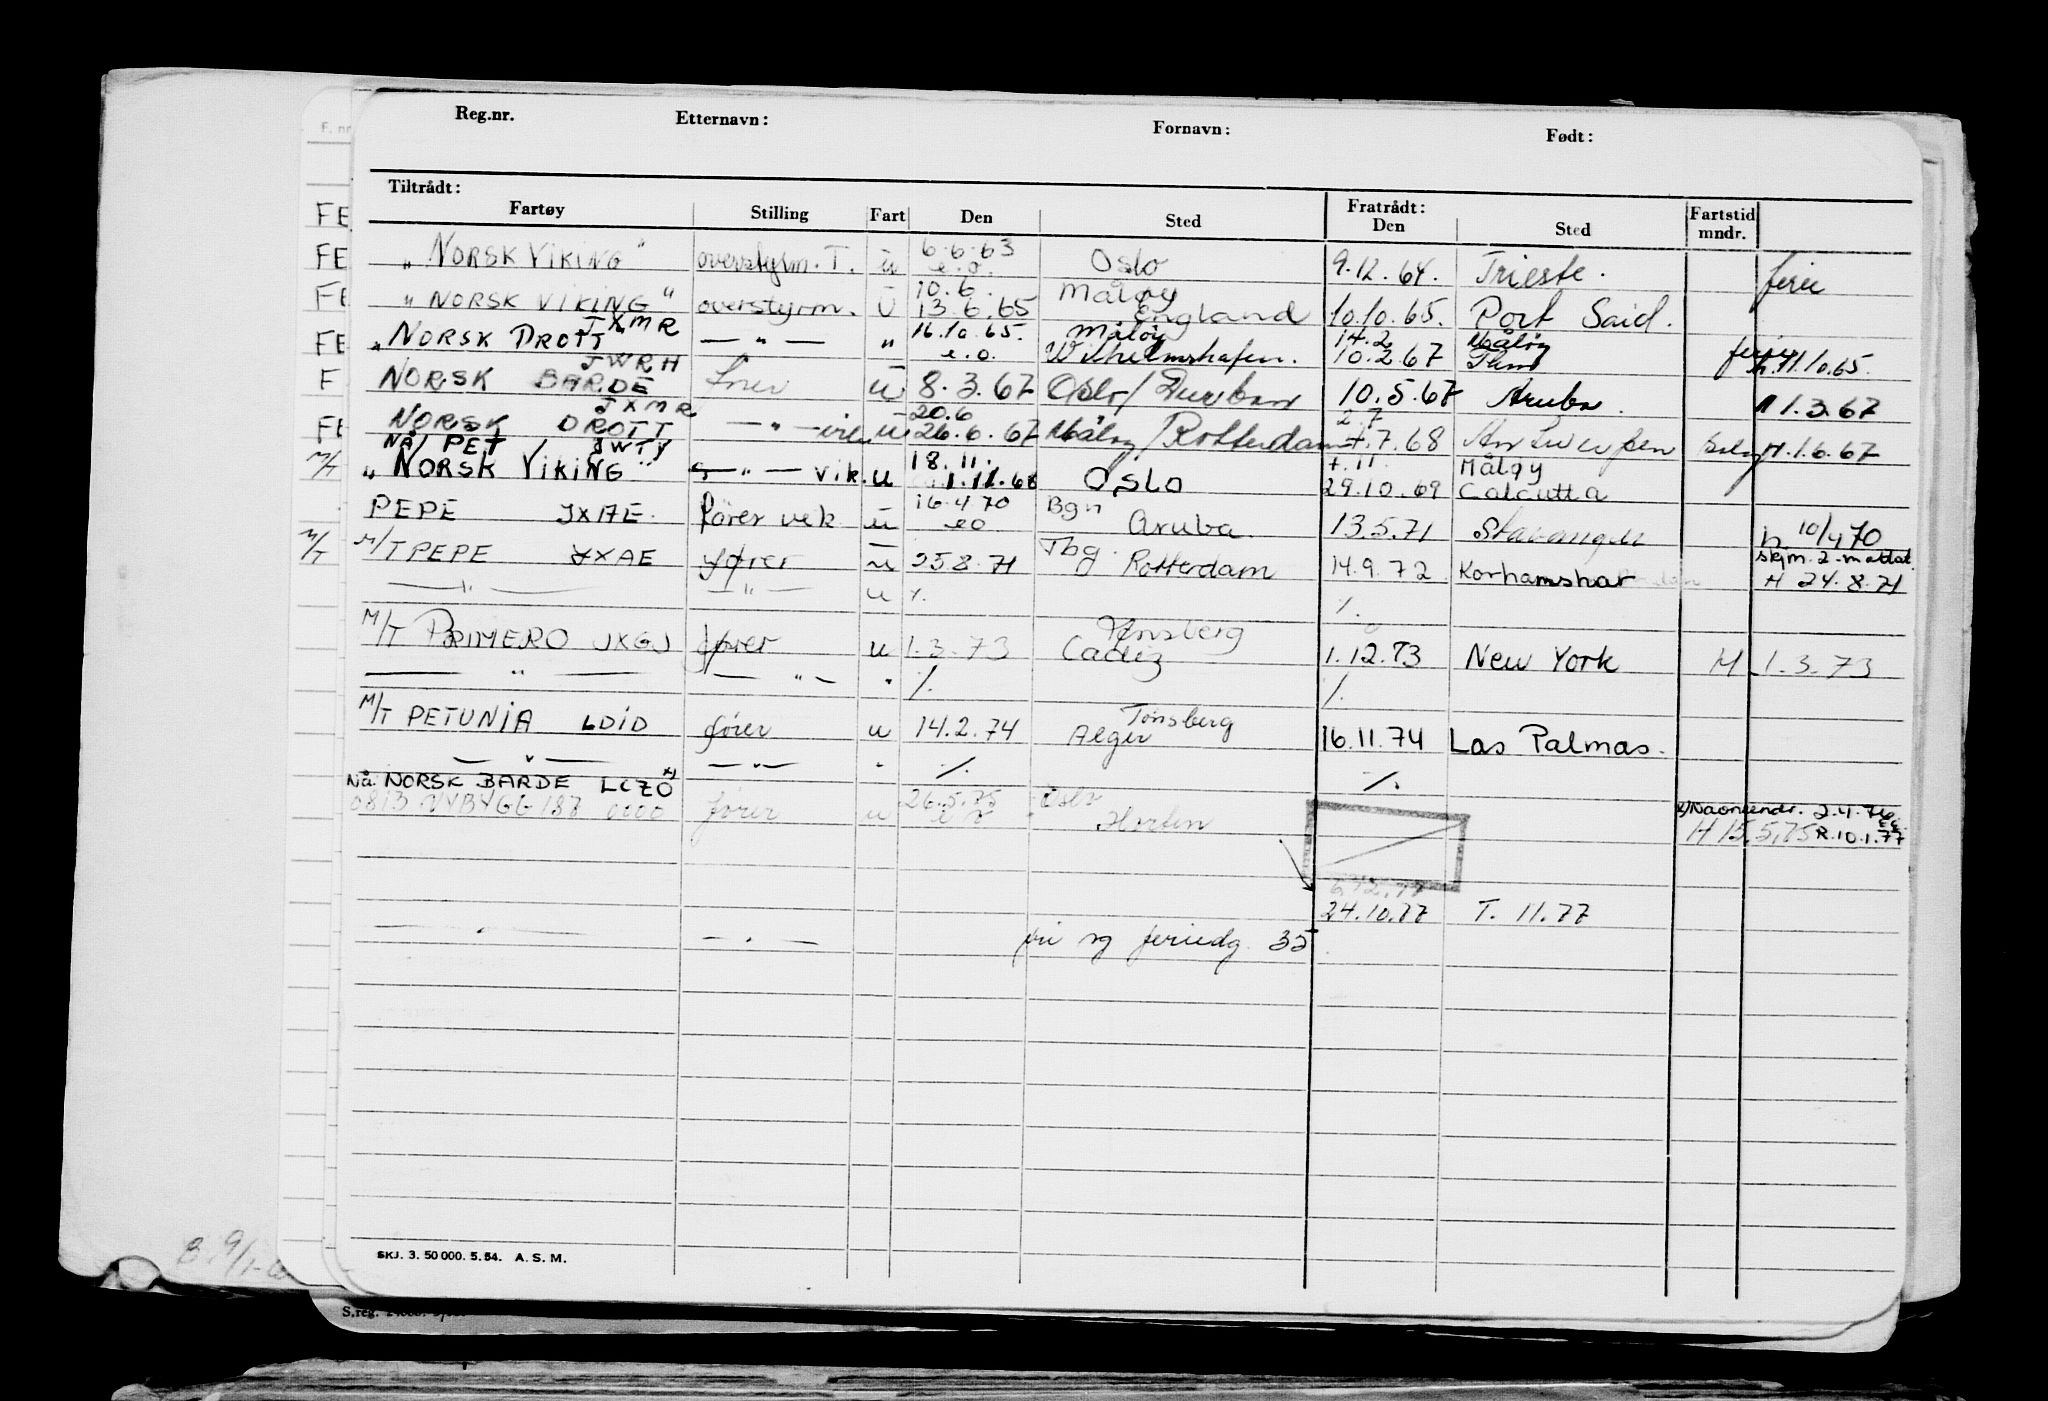 Reg.nr. Etternavn: Fornavn: Født:
Tiltrådt: Fratrådt: Fartstid
Fartøy Stilling Fart Den Sted Den Sted mndr.
FE
6.6.63
FE "NORSK VIKING" overstyrm. T. u e.o. Oslo 9.12.64. Trieste. ferie
10.6. Måløy
FE "NORSK VIKING" overstyrm. U 13.6.65 England 10.10.65. Port Said.
JXMR 16.10.65. Måløy 14.2 Måløy
FE "NORSK DROTT — " — " e.o. Wilhelmshafen. 10.2.67 ferie h. 11.10.65.
JWRH
F NORSK BARDE u 8.3.67 Oslo/Durban 10.5.67 Aruba. H 1.3.67
JXMR 20.6 2.7
FE NORSK DROTT — " — u 26.6.67 Måløy/Rotterdam 7.68 Antwerpen H. 1.6.67
Nå/ PET JWTY 18.11. Måløy
M/T "NORSK VIKING" — " — vik. u 1.11.68 Oslo 29.10.69 Calcutta
16.4.70 Bgn
PEPE JXAE. fører vek u eo Aruba. 13.5.71 Stavanger h. 10/4 70
Tbg. skjm. 2-mattat.
M/T M/T PEPE JXAE fører u 25.8.71 Rotterdam 14.9.72 Korhamshar H 24.8.71
— " — — " — u %. %.
Tønsberg
M/T PRIMERO JXGJ fører u 1.3.73 Cadiz 1.12.73 New York H 1.3.73
— " — — " — " %. %.
Tønsberg
M/T PETUNIA LDID fører u 14.2.74 Alger 16.11.74 Las Palmas.
— " — — " — " %. %.
Nå. NORSK BARDE LCZO x)
26.5.75 Oslo x) Navneendr. 2.4.76
0813 NYBYGG 187 0000 fører u Horten H 15.5.75 R.10.1.77
24.10.77 T. 11.77
— " — — " — fri og feriedg. 35
SKJ. 3. 50 000. 5. 64. A. S. M.
S.reg.